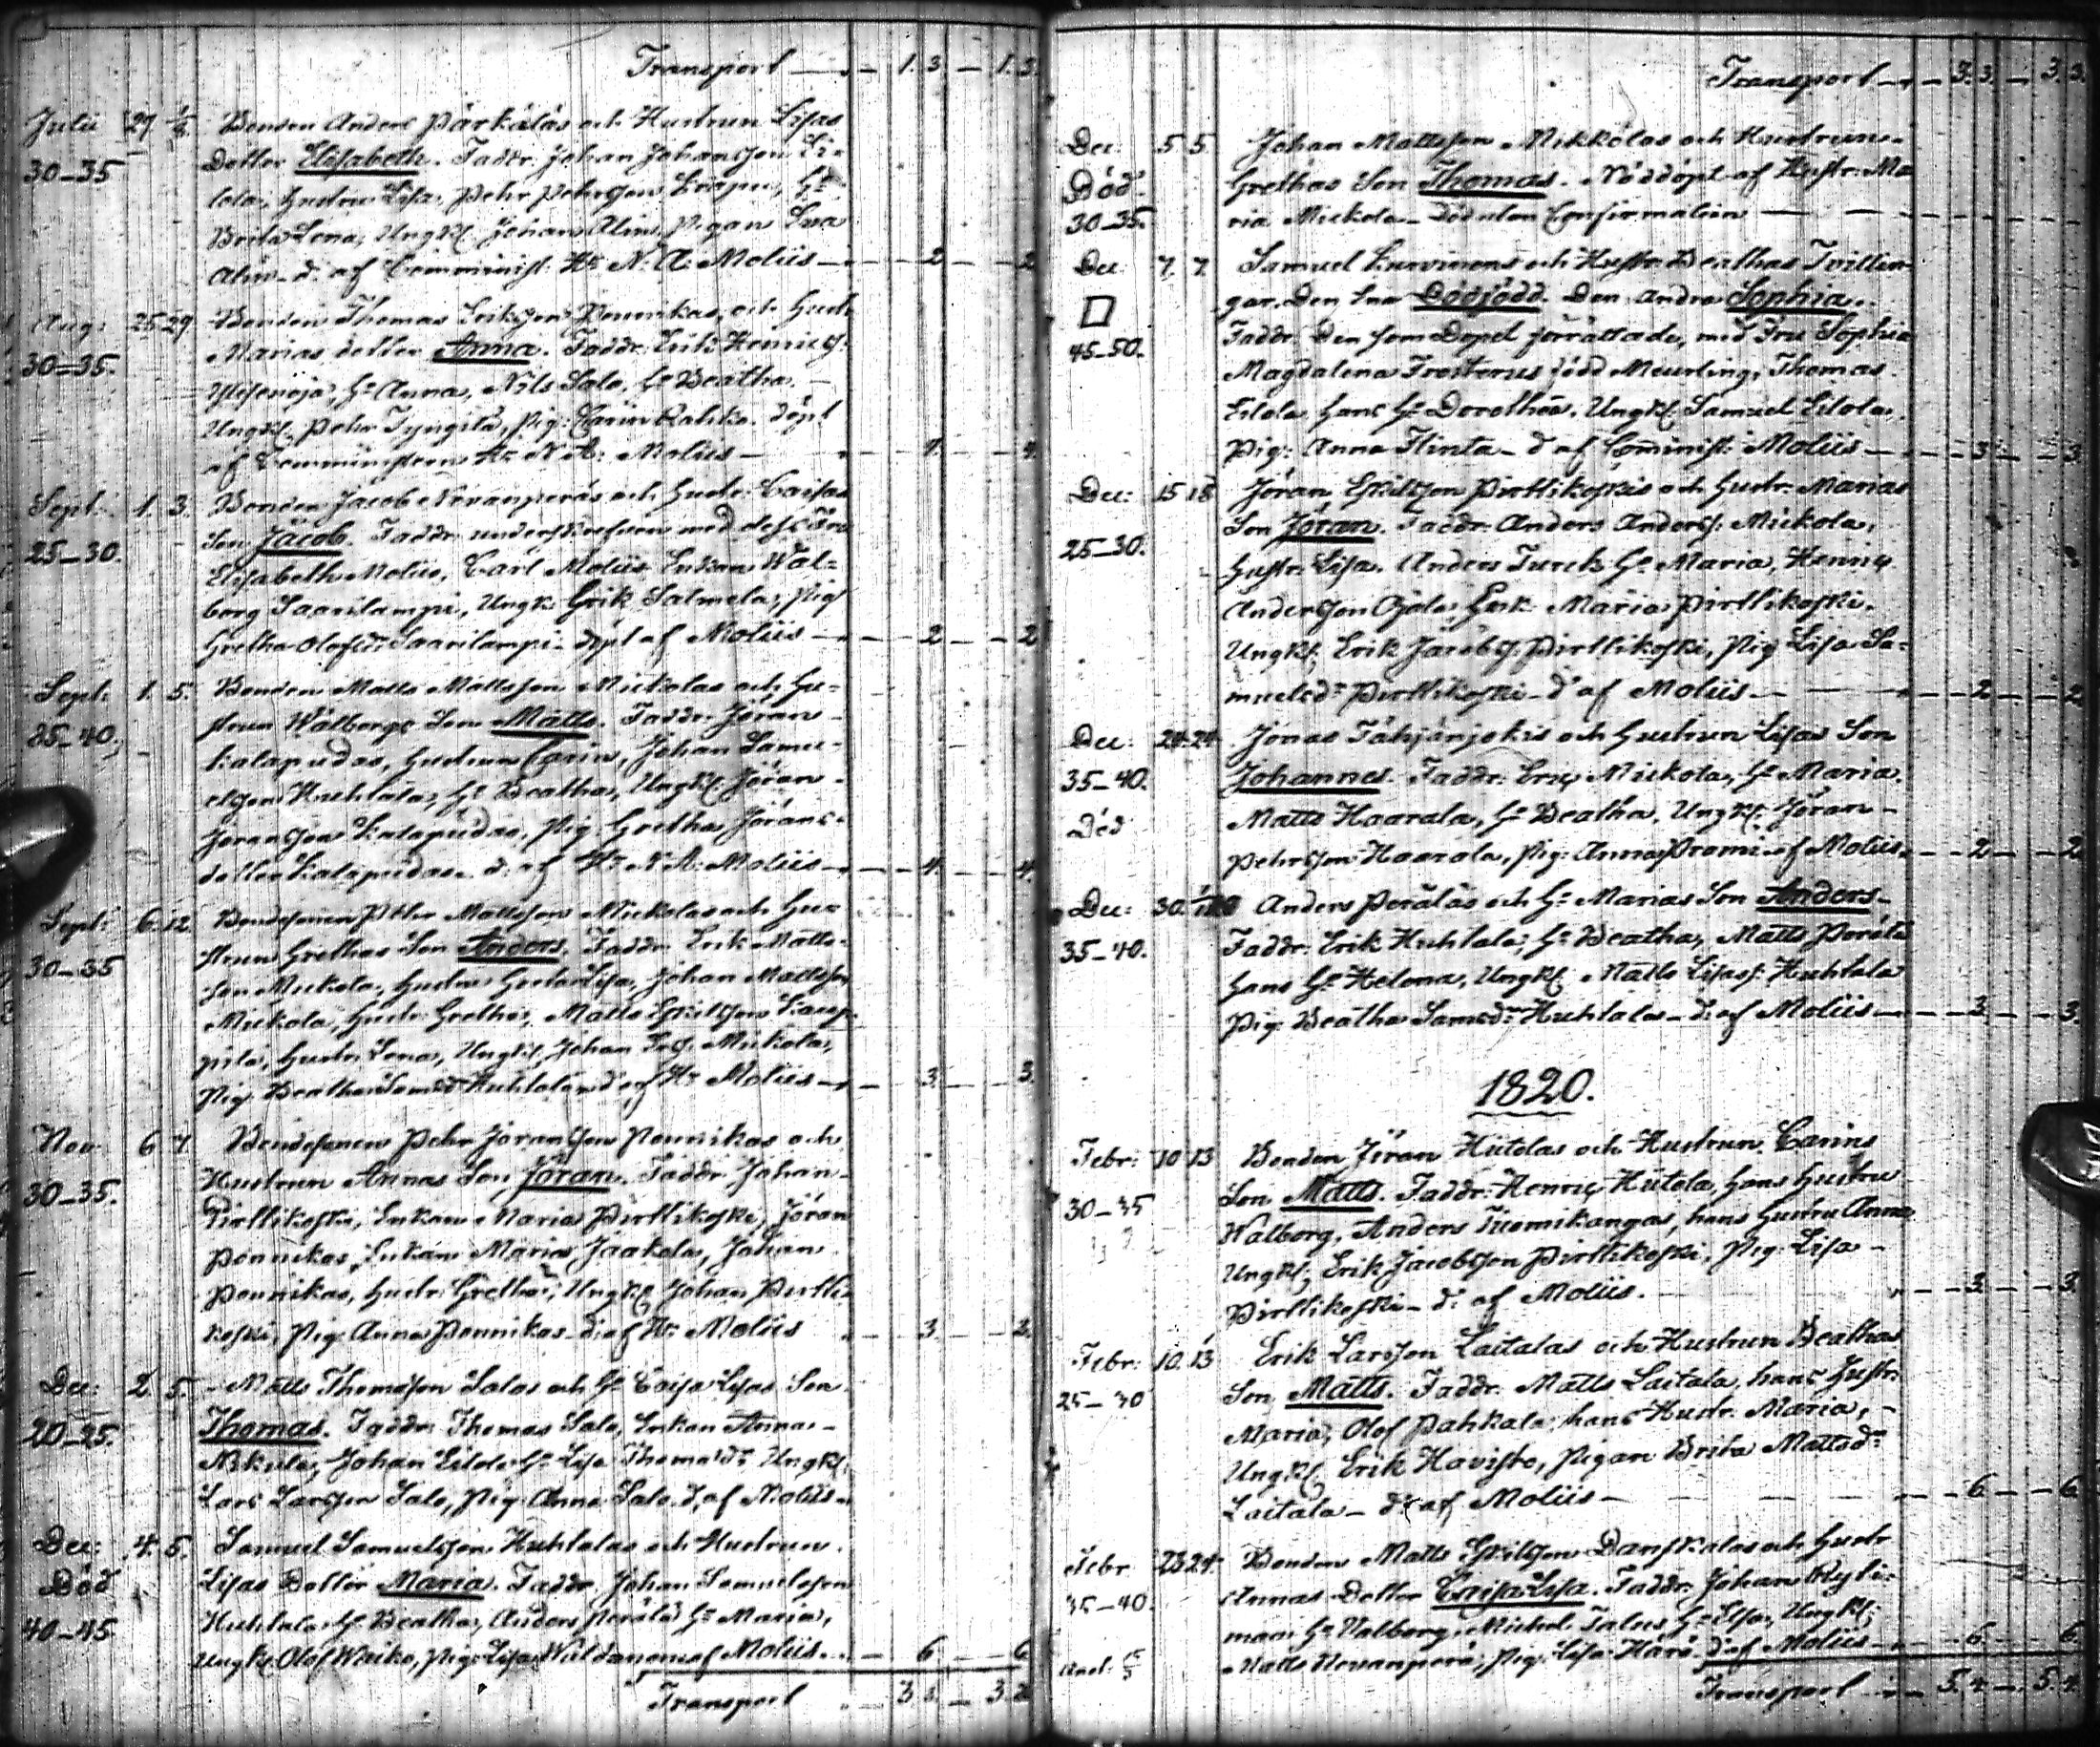 Transport — 1. 3 — 1. 3.
Julii 29 1/8 Bonden Anders Pärkäläs och Hustrun Lisas
30–35 Dotter Elisabeth. Faddr: Johan Johansson Li-
lola, Hustru Lisa, Pehr Pehrsson
Brita Lena, Ungk: Johan Alin, Pigan Eva
Alin – d: af Comminist. Hr N. A. Moliis — 2 — 2
Aug: 25 29 Bonden Thomas Eriksson Pennikas, och Hust:
30–35. Marias dotter Anna. Faddr: Erik Henrics:
Hs Anna, Nils Salo, Hs Beatha,
Ungk: Pehr Tyngilä, Pig: Carin Rahko. döpt
af Comministern Hr N A: Moliis — 4. — 4.
Sept: 1. 3. Bonden Jacob Nevanperäs och Hustr: Caisas
25–30. Son Jacob. Faddr: underskrefven med dess Fru
Elisabeth Moliis, Carl Moliis Enkan Wal-
borg Saarilampi, Ungk: Erik Salmela, Pig
Gretha Olofsdr Saarilampi – döpt af Moliis — 2 — 2
Sept: 1. 5. Bonden Matts Mattsson Mickolas och Hu-
35–40, strun Walborgs Son Matts. Faddr: Jöran
Kalapudas, Hustrun Carin, Johan Samu-
elsson Huhtala, Hs Beatha, Ungk: Jöran
Joransson Kalapudas, Pig: Gretha Jörans-
dotter Kalapudas. d: af Hr N A: Moliis — 4. — 4.
Sept: 6. 12 Bondesonen Pehr Mattsson Mickolas och Hu-
30–35 struns Grethas Son Anders. Faddr: Erik Matts-
son Mickola, Hustru Greta Lisa, Johan Mattsson
Mickola, Hustr: Gretha, Matts Eskilsson Kaup-
pila, Hustr: Lena, Ungk: Johan Mickola,
Pig: Beatha Samsdr Huhtala – d: af Hr Moliis — 3. — 3.
Nov: 6 7. Bondesonen Pehr Joransson Pennikas och
30–35. Hustrun Annas Son Jöran. Faddr: Johan
Pirttikoski, Enkan Maria Pirttikoski, Jöran
Pennikas, Enkan Maria Jaakola, Johan
Pennikas, Hustr: Gretha, Ungk: Johan Pirtti-
koski, Pig: Anna Pennikas – d: af Hr Moliis — 3. — 3.
Dec: 2 5. Matts Thomasson Salos och Hs Caisa Lisas Son
20–25. Thomas. Faddr: Thomas Salo, Enkan Anna
Nikula, Johan Lilola Hs Lisa Thomasdr Ungk:
Lars Larsson Salo, Pig: Anna Salo. d: af Moliis
Dec: 4. 5. Samuel Samuelsson Huhtalas och Hustrun
Död Lisas Dotter Maria. Faddr: Johan Samuelsson
40–45 Huhtala Hs Beatha, Anders Perälä Hs Maria,
Ungk: Olof Weiko, Pig: Lisa af Moliis — 6 — 6
Transport — 3 — 3
Transport — 3. 3. — 3. 3.
Dec: 5 5. Johan Mattsson Mikkolas och Hustruns
Död. Grethas Son Thomas. Nöddöpt af Hustr: Ma
30–35. ria Mickola – Död utan Confirmation
Dec: 7. 7. Samuel och Hustr: Beathas Tvillin-
gar. Den Ena Dödfödd. Den Andra Sophia.
45–50. Faddr: Den som Dopet förrättade, med Fru Sophia
Magdalena Frosterus född Meurling, Thomas
Lilola, Hans Hs Dorothea, Ungk: Samuel Lilola,
Pig: Anna Flinta – d: af Cominist: Moliis — 3 — 3
Dec: 15 18 Jöran Eskilsson Pirttikoskis och Hustr: Marias
25–30. Son Jöran. Faddr: Anders Anderss: Mickola,
Hustr: Lisa. Anders Turck Hs Maria, Henric
Andersson Ojala, Enk: Maria Pirttikoski.
Ungk: Erik Jacobss: Pirttikoski, Pig Lisa Sa-
muelsdr Pirttikoski – d: af Moliis — 2 — 2
Dec: 24. 24. Jonas Tähjänjokis och Hustrun Lisas Son
35–40. Johannes. Faddr: Eric Mickola, Hs Maria.
Död Matts Haarala, Hs Beatha, Ungk: Jöran
Pehrsson Haarala, Pig: Anna Prami af Moliis — 2 — 2
Dec: 30. Anders Peräläs och Hs Marias Son Anders
35–40. Faddr: Erik Huhtala, Hs Beatha, Matts Perälä
Hans Hs Helena, Ungk: Matts Huhtala
Pig: Beatha Samsdr Huhtala – d: af Moliis — 3 — 3.
1820.
Febr: 10 13 Bonden Jöran Hütolas och Hustrun Carins
30–35 Son Matts. Faddr: Henric Hütola, Hans Hustru
Walborg, Anders Tuomikangas, hans Hustru Anna
Ungk: Erik Jacobsson Pirttikoski, Pig: Lisa
Pirttikoski – d: af Moliis. — 3 — 3
Febr: 10. 13 Erik Larsson Laitalas och Hustrun Beathas
25–30 Son Matts. Faddr: Matts Laitala, hans Hustr:
Maria, Olof Pahkala, hans Hustr. Maria,
Ungk: Erik Havisto, Pigan Brita Mattsdr
Laitala – d: af Moliis — 6 — 6
Febr 23 24. Bonden Matts Eskilsson Danskalas och Hustr
35–40. Annas Dotter Caisa Lisa. Faddr: Johan Ryti-
maa Hs Walborg, Michel Talus Hs Lisa, Ungk:
Matts Nevanperä, Pig: Lisa Harä. d: af Moliis — 6 — 6
Transport — 5. 4 — 5. 4